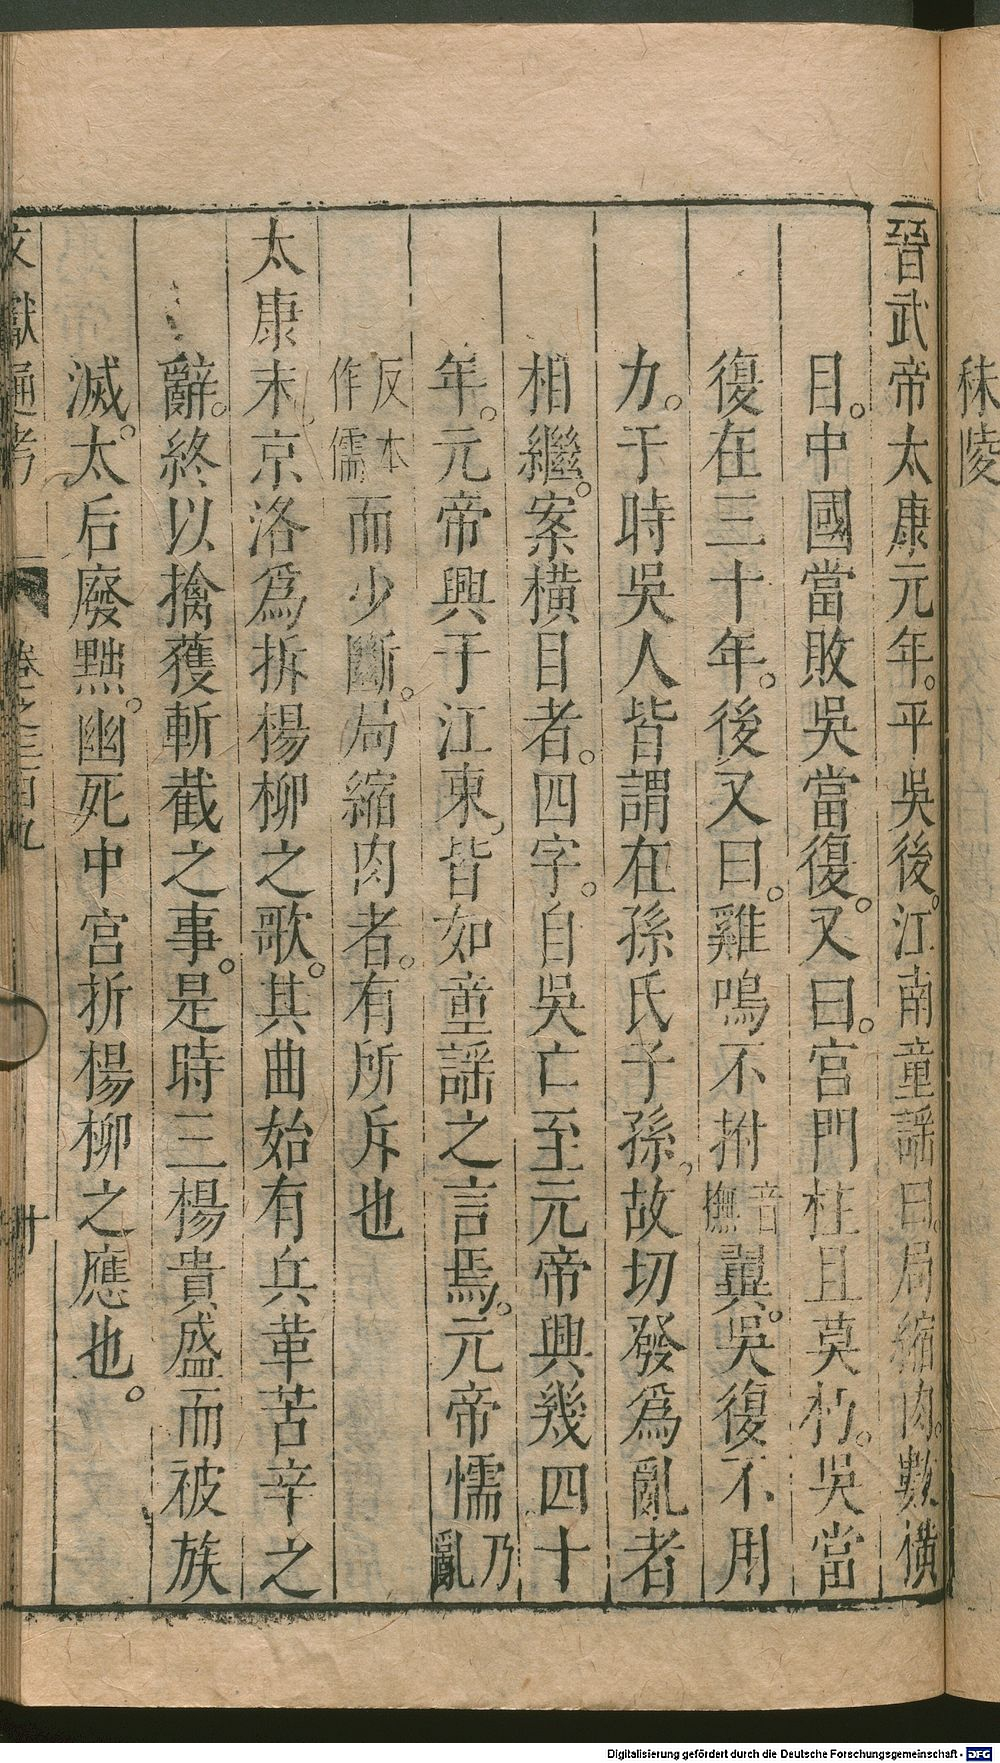 秣陵
晉武帝太康元年。平吳後。江南童謡曰。局縮肉。數橫
目。中國當敗吳當復。又曰。宮門柱且莫朽。吳當
復在三十年。後又曰。雞鳴不拊音撫翼。吳復不用
力。于時吳人皆謂在孫氏子孫，故切發爲亂者
相繼。案橫目者。四字。自吳亡至元帝興幾四十
年。元帝興于江東，皆如童謡之言焉。元帝懦乃亂
反本作儒而少斷。局縮肉者。有所斥也
太康末，京洛爲折楊柳之歌。其曲始有兵革苦辛之
辭。終以擒獲斬截之事。是時三楊貴盛而被族
滅。太后廢黜。幽死中宮折楊柳之應也。
文獻通考 卷之三百九 廿
Digitalisierung gefördert durch die Deutsche Forschungsgemeinschaft - DFG